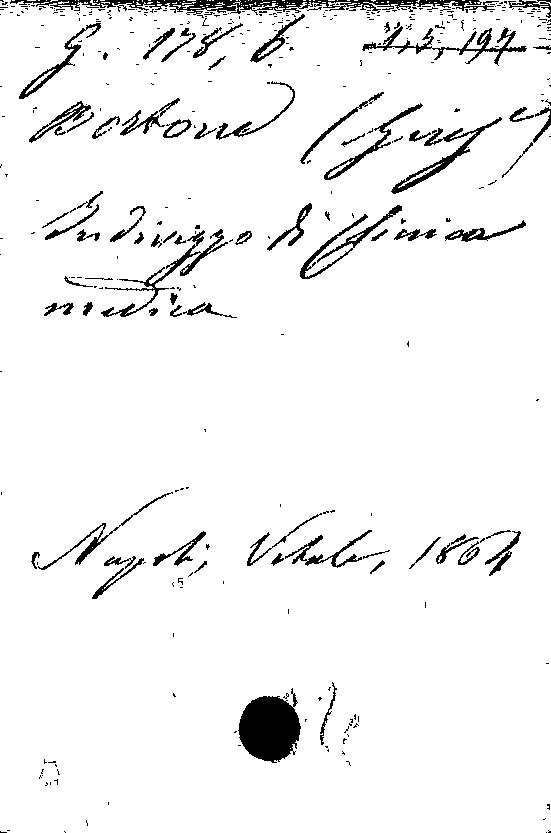 G. 178, 6 1, 5, 197
Bortone (Gius.e)
Indirizzo di Clinica
medica
Napoli, Vitale, 1864